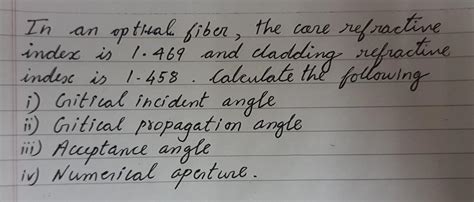 In an optical fiber, the core refractive
index is 1.469 and cladding refractive
index is 1.458. Calculate the following
i) Critical incident angle
ii) Critical propagation angle
iii) Acceptance angle
iv) Numerical aperture.